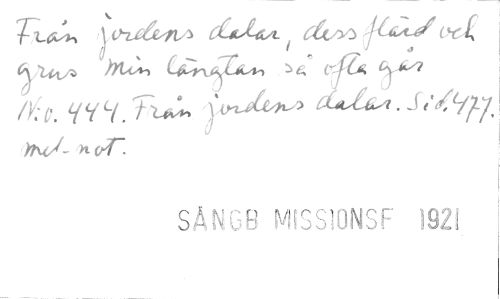 Från jordens dalar, dess flärd och
grus min längtan så ofta går
N:o. 444. Från jordens dalar. Sid. 477.
mel-not.
SÅNGB MISSIONSF 1921